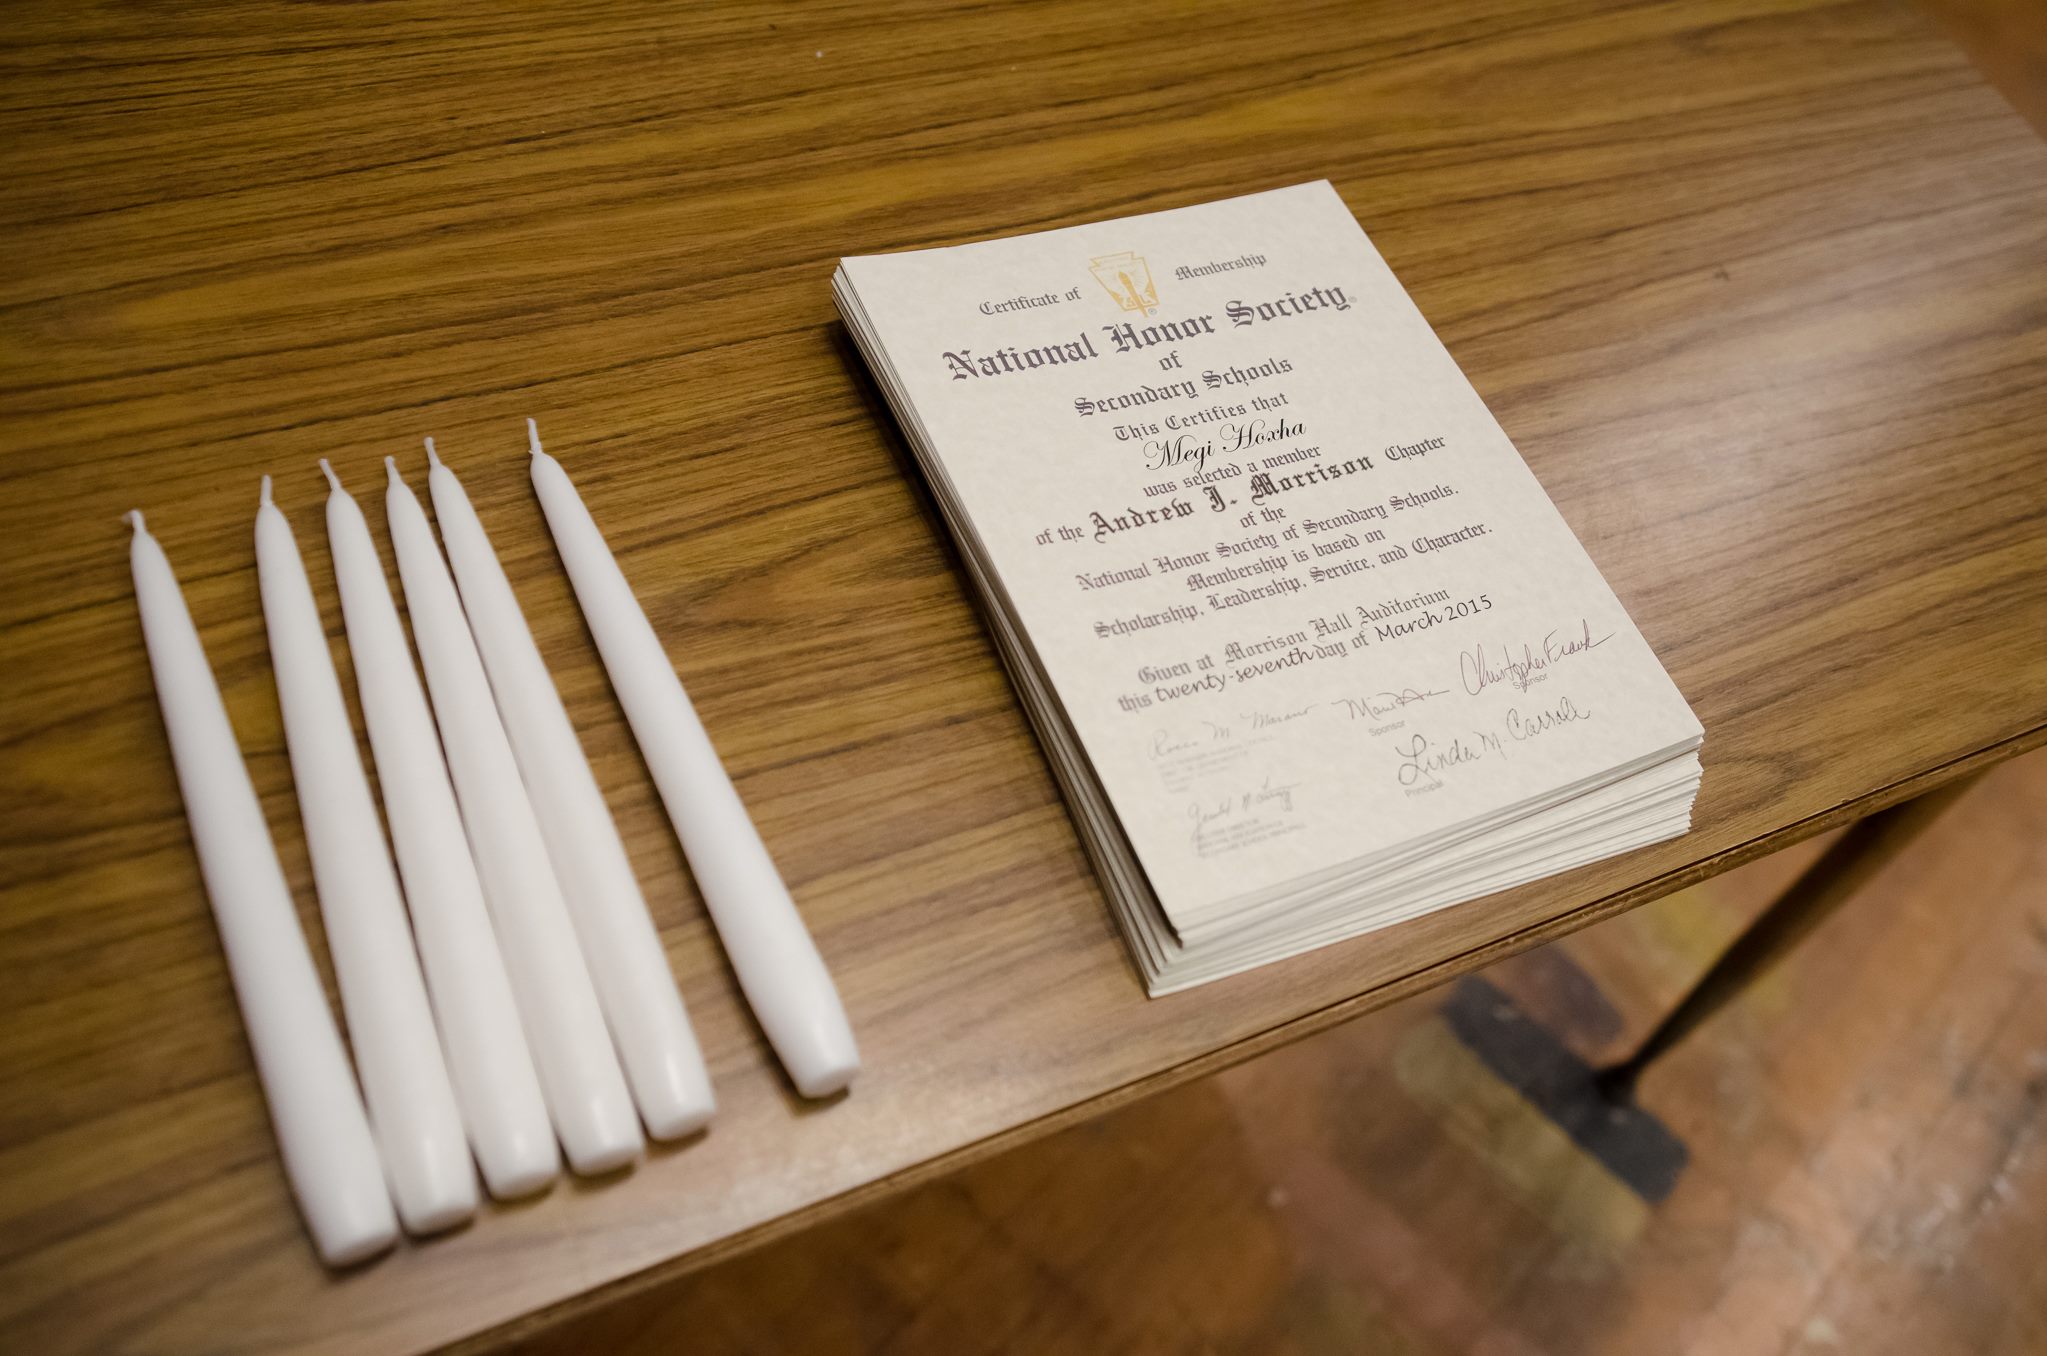 Certificate of Membership
National Honor Society®
of
Secondary Schools
This Certifies that
Megi Hoxha
was selected a member
of the Andrew J. Morrison Chapter
of the
National Honor Society of Secondary Schools.
Membership is based on
Scholarship, Leadership, Service, and Character.
Given at Morrison Hall Auditorium
this twenty-seventh day of March 2015
Rocco M. Marano
Christopher Frank
Sponsor
Sponsor
Linda M. Carrole
Principal